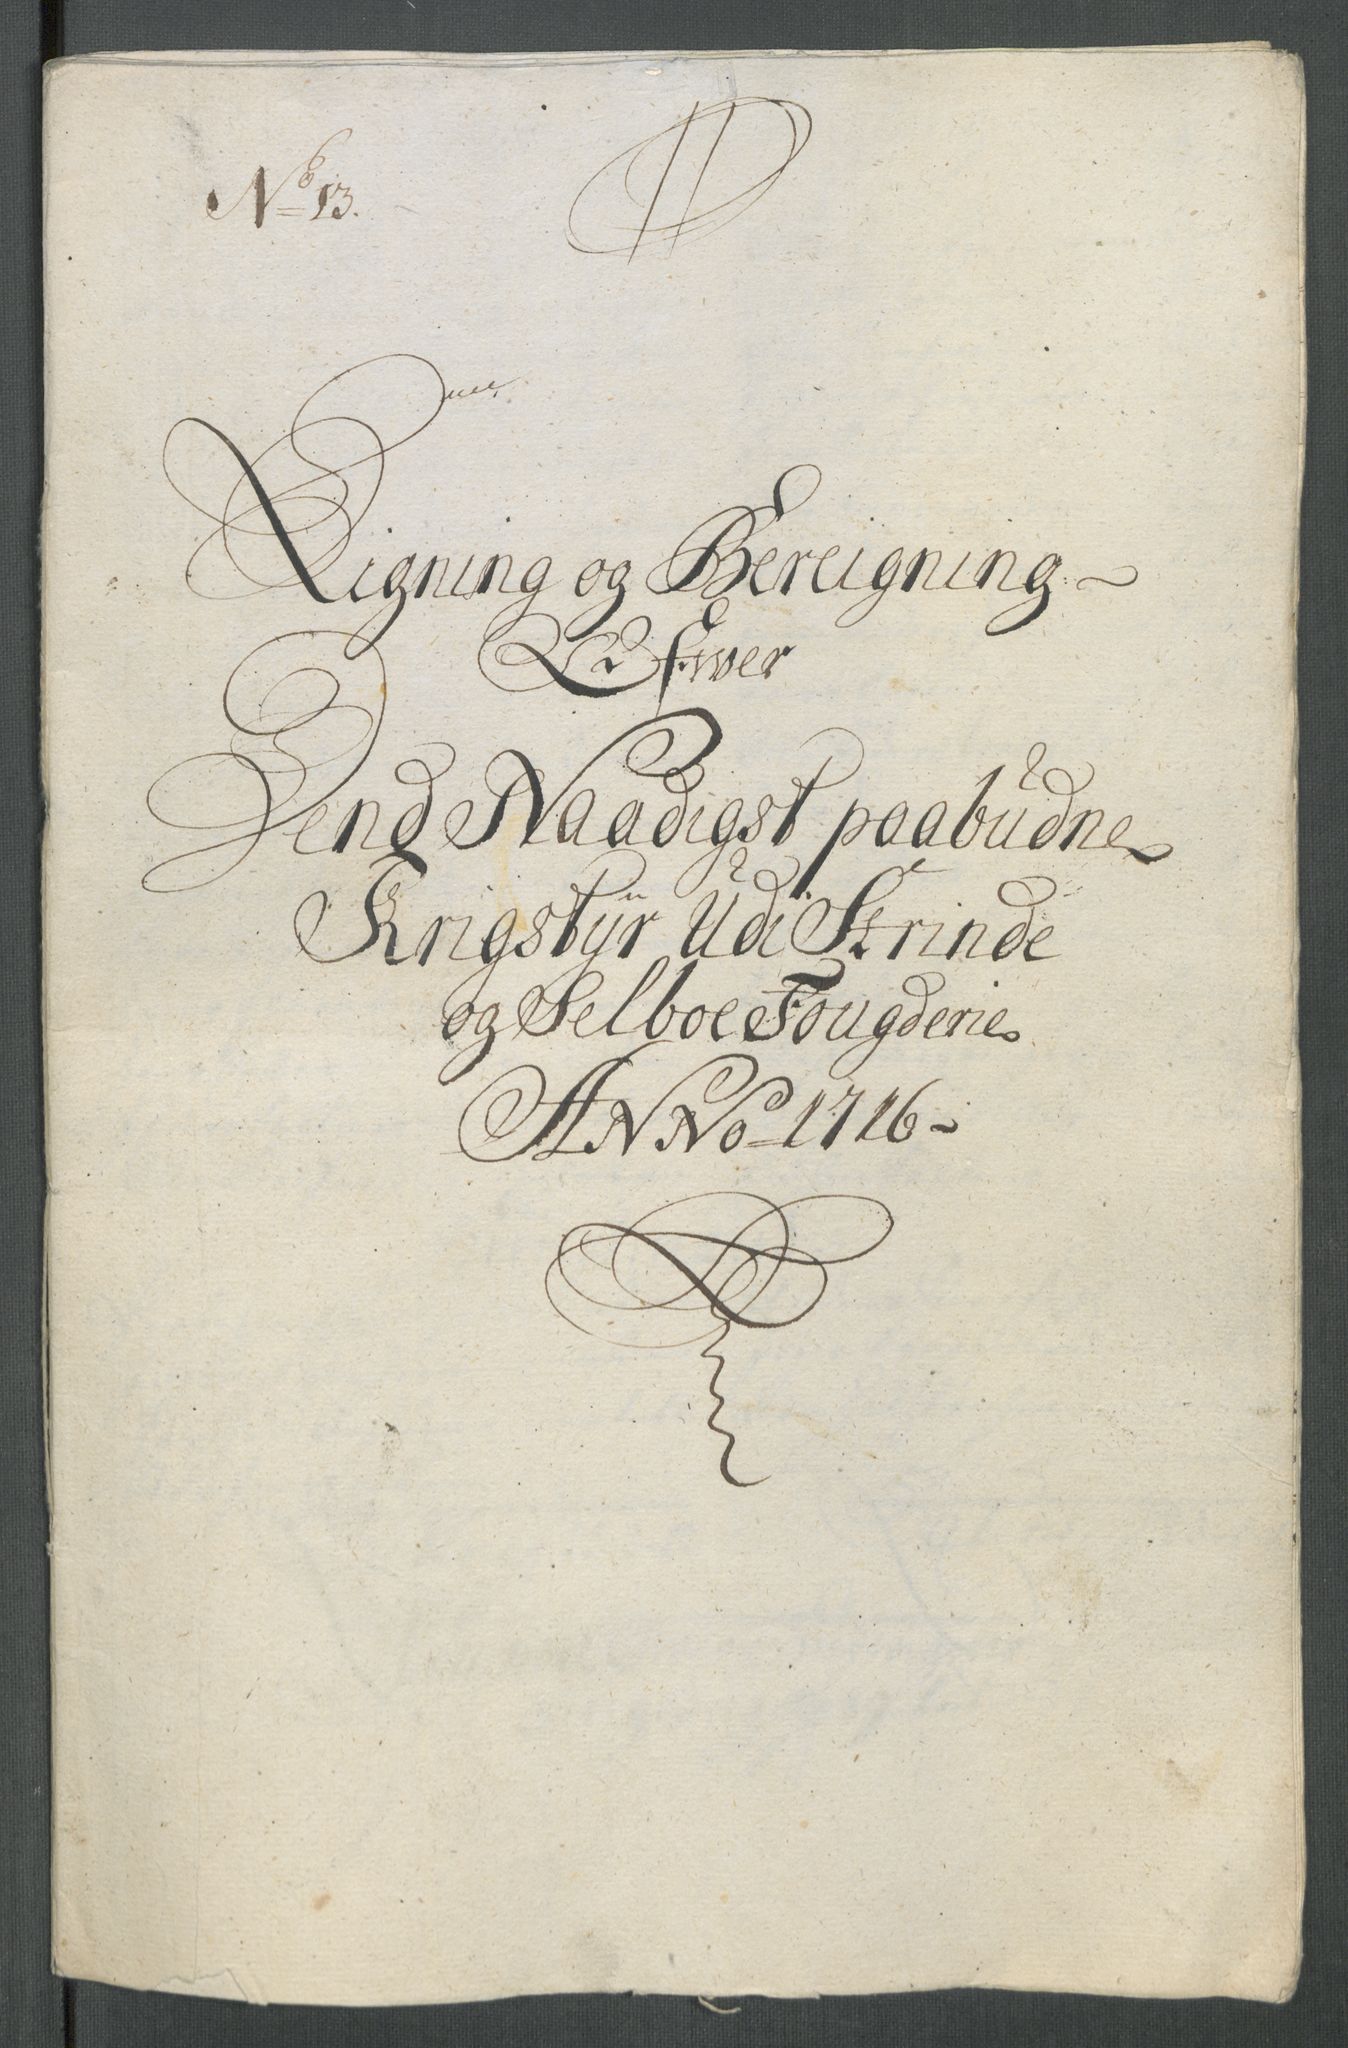 No 13.
Ligning og Bereigning
Ofwer
Dend Naadigst paabudne
Krigstÿr Udi Strinde
og Selboe Fougderie
ANNo 1716